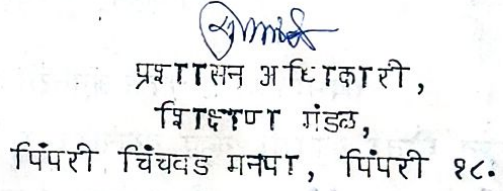 प्रशासन अधिकारी,
शिक्षण मंडळ,
पिंपरी चिंचवड मनपा, पिंपरी १८.